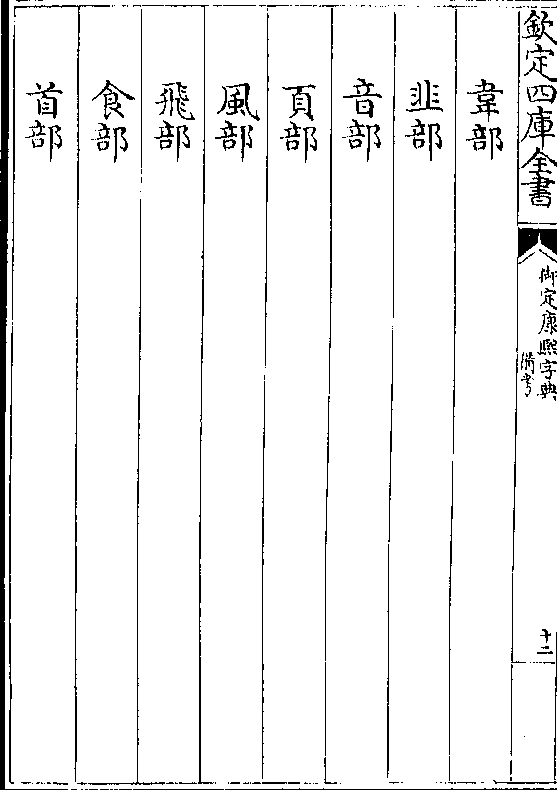 欽定四庫全書
御定康熙字典
備考
十二
韋部
韭部
音部
頁部
風部
飛部
食部
首部